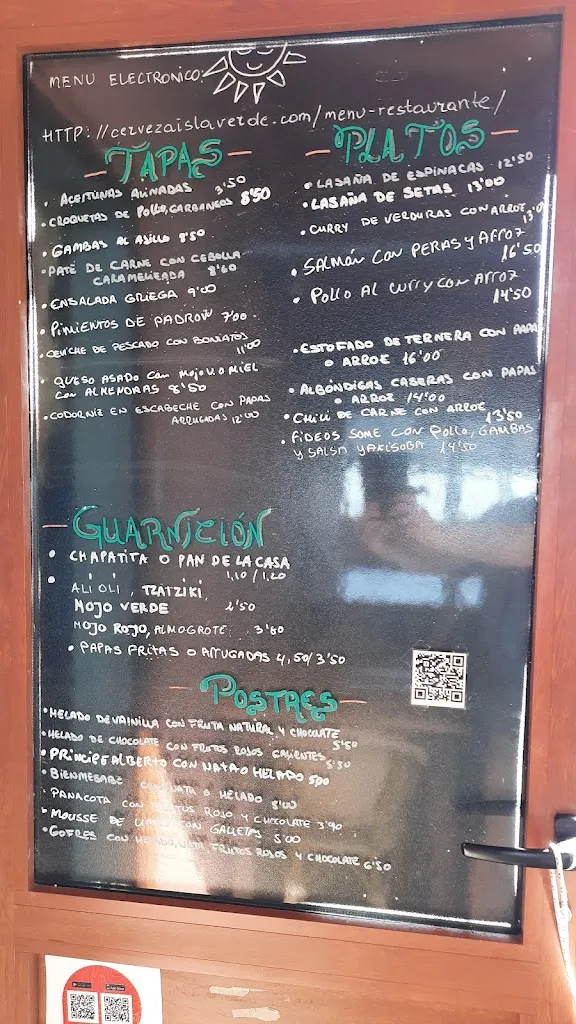 MENU ELECTRONICO:
HTTP://cervezaislaverde.com/menu-restaurante/
TAPAS
• ACEITUNAS ALINADAS 3'50
• CROQUETAS DE POLLO, GARBANZOS 8'50
• GAMBAS AL AJILLO 9'50
• PATÉ DE CARNE CON CEBOLLA
CARAMELIZADA 8'60
• ENSALADA GRIEGA 9'00
• PIMIENTOS DE PADRON 7'00
• CEVICHE DE PESCADO CON BONIATOS
11'00
• QUESO ASADO CON MOJO U O MIEL
CON ALMENDRAS 8'50
• CODORNIZ EN ESCABECHE CON PAPAS
ARRUGADAS 12'00
PLATOS
• LASAÑA DE ESPINACAS 12'50
• LASAÑA DE SETAS 13'00
• CURRY DE VERDURAS CON ARROZ
• SALMÓN CON PERAS Y ARROZ
16'50
• POLLO AL CURRY CON ARROZ
14'50
• ESTOFADO DE TERNERA CON PAPA
O ARROZ 16'00
• ALBÓNDIGAS CASERAS CON PAPAS
O ARROZ 14'00
• CHILI DE CARNE CON ARROZ
13'50
• FIDEOS SOME CON POLLO, GAMBAS
Y SALSA YAKISOBA 14'50
GUARNICIÓN
• CHAPATITA O PAN DE LA CASA
1,10 / 1,20
• ALI OLI, TZATZIKI,
MOJO VERDE
MOJO ROJO, ALMOGROTE
• PAPAS FRITAS O ARRUGADAS 4,50/3'50
POSTRES
• HELADO DE VAINILLA CON FRUTA NATURAL Y CHOCOLATE
5'50
• HELADO DE CHOCOLATE CON FRUTOS ROJOS CALIENTES
5'50
• PRINCIPE ALBERTO CON NATA O HELADO 5,00
• BIENMESABE NATA O HELADO
• PANACOTA CON FRUTOS ROJO Y CHOCOLATE 3'90
• MOUSSE DE CON GALLETAS 5'00
• GOFRES CON HELADO, NATA, FRUTOS ROJOS Y CHOCOLATE 6'50